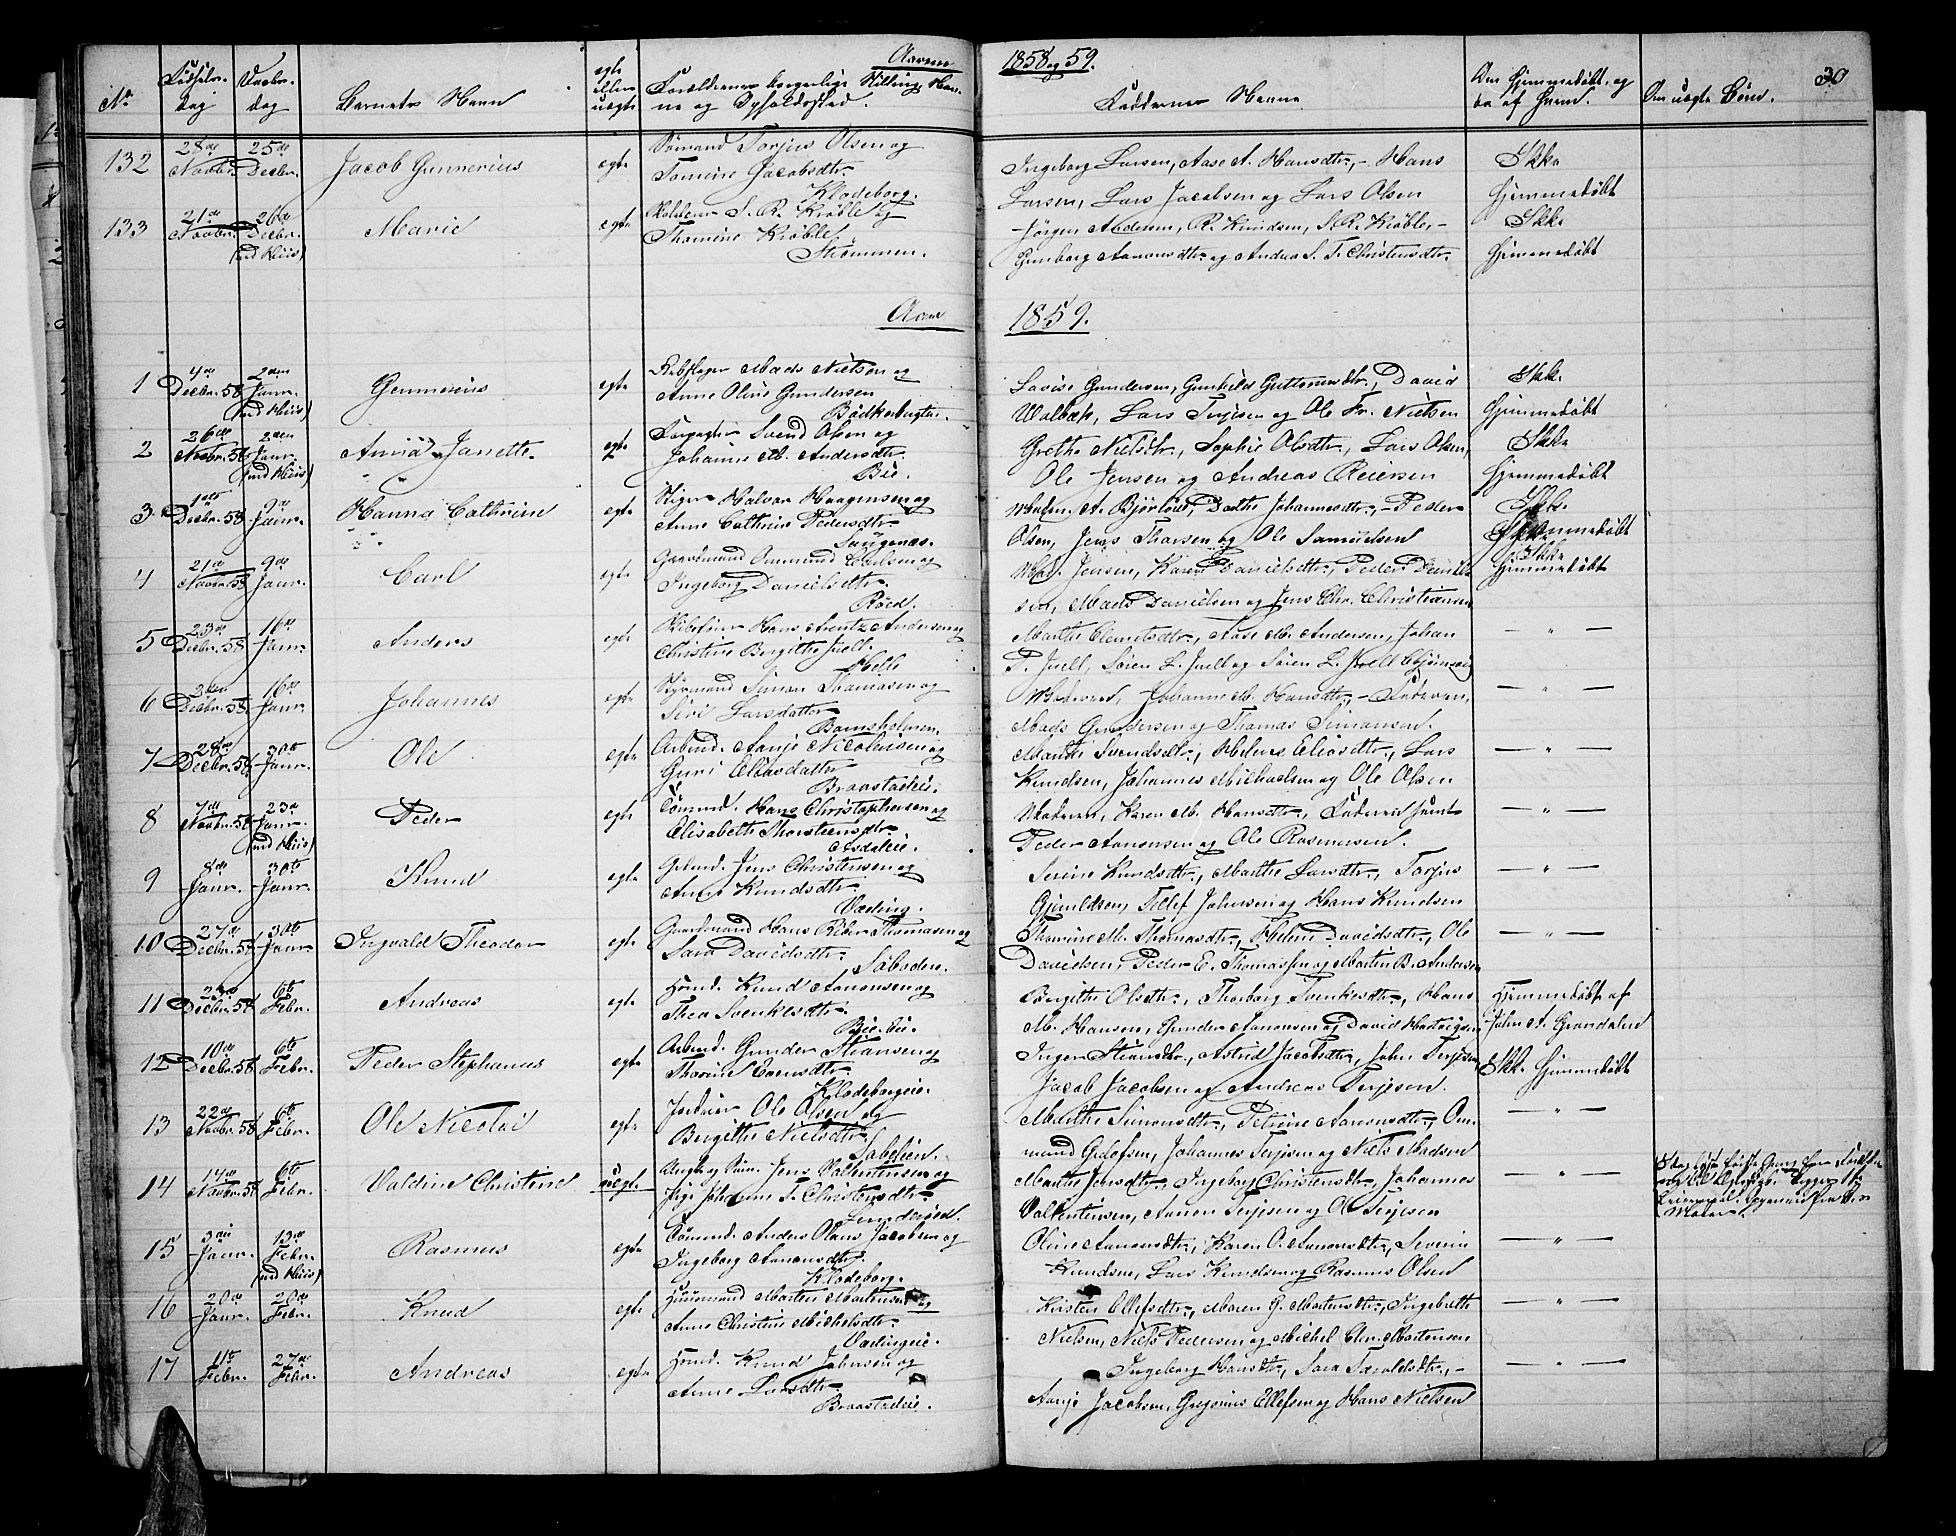 Aarene 1858 og 59. 30
No Fødsels- dag Daabs- dag Barnets Navn egte eller uegte Forældrenes borgerlige Stilling, Nav-
ne og Opholdssted Faddernes Navne Om Hjemmedøbt og
da af hvem. Om uegte Børn.
132 28de Novbr. 25de Decbr. Jacob Gunnerius egte Sømand Torjus Olsen og
Tomine Jacobsdtr.
Klodeborg.
Ingeborg Larsen, Aase A. Hansdtr, - Hans
Larsen, Lars Jacobsen og Lars Olsen
Ikke
Hjemmedøbt
133 21de Novbr. 26de Decbr. (ved Hiis) Marie egte S. R. Krøble og
Thomine Krøble
Strømmen.
Jørgen Andersen, R. Knudsen, S. R. Krøble, -
Gunborg Aanonsdtr og Andrea S. T. Christensdtr.
Ikke
Hjemmedøbt
Aaret 1859.
1 4de Decbr. 58 2den Janr. (ved Hiis) Gunnerius egte Rebslager Mads Nielsen og
Anne Oline Gundersen
Lovise Gundersen, Gunhild Guttormsdtr, David
Walbæk, Lars Terjesen og Ole Fr. Nielsen
Ikke
Hjemmedøbt
2 26de Novbr. 58 2den Janr. (ved Hiis) Anna Janette egte Svend Olsen og
Johanne M. Andersdtr.
Bie.
Grethe Nielsdtr, Sophie Olsdtr, Lars Olsen,
Ole Jensen og Andreas Reiersen
Ikke
Hjemmedøbt
3 1ste Decbr. 58 9de Janr. Hanna Cathrine egte Halvor Haagensen og
Anne Cathrine Pedersdtr.
A. Bjørløw, Dorthe Johannesdtr, - Peder
Olsen, Jens Tharsen og Ole Samuelsen
Ikke
Hjemmedøbt
4 21de Novbr. 58 9de Janr. Carl egte Gaardmand Ommund Carlsen og
Ingeborg Danielsdtr.
Røed.
Jensen, Karen Danielsdtr, Peder Daniel-
sen, Mads Danielsen og Jens Chr. Christiansen
Ikke
Hjemmedøbt
5 23de Decbr. 58 16de Janr. Anders egte Hans Arentz Andersen og
Christine Birgithe Juell.
Helle
Marthe Clemetsdtr, Aase M. Andersen, Johan
P. Juell, Søren L. Juell og Søren L. Juell
— " —
6 3den Decbr. 58 16de Janr. Johannes egte Simon Thomasen og
Siri Larsdatter
Moderen, Johanne M. Hansdtr, - Faderen,
Mads Gundersen og Thomas Simonsen.
— " —
7 28de Decbr. 58 30te Janr. Ole egte Arbmd. Aanje Nicolaisen og
Guri Eliasdatter
Braastadeie.
Marthe Svendsdtr, Helene Eliasdtr, Lars
Knudsen, Johannes Michaelsen og Ole Olsen
— " —
8 7de Novbr. 58 23de Janr. (ved Hiis) Peder egte Tømmd. Hans Christophersen og
Elisabeth Thorsteensdtr.
Asdaleie.
Moderen, Karen M. Hansdtr, Faderen samt
Peder Aanonsen og Ole Rasmusen.
— " —
9 8de Janr. 30te Janr. Knud egte Jens Christensen og
Anne Knudsdtr.
Væding.
Serine Knudsdtr, Marthe Larsdtr, Torjus
Gjeruldsen, Tellef Johnsen og Hans Knudsen
— " —
10 27de Decbr. 58 30te Janr. Ingvald Theodor egte Gaardmand Hans Riber Thomasen og
Sara Davidsdtr.
Thomine M. Thomasdtr, Helene Davidsdtr, Ole
Davidsen, Peder E. Thomassen og Martin B. Andersen
— " —
11 Decbr. 58 6te Febr. Andreas egte Knud Aanonsen og
Thea Svenkesdtr.
Bie-Eie.
Birgithe Olsdtr, Thorborg Svenkesdtr, Hans
M. Hansen, Gunder Aanonsen og David Hartvigsen
Hjemmedøbt af
John A. Grandalen
12 10de Decbr. 58 6te Febr. Peder Stephanus egte Arbmd. Gunder Stiansen og
Klodeborgeie.
Inger Stiansdtr, Astrid Jacobsdtr, John Terjesen,
Jacob Jacobsen og Andreas Terjesen.
Ikke Hjemmedøbt
13 22de Novbr. 58 6te Febr. Ole Nicolai egte Jordeier Ole Olsen og
Birgitte Nielsdtr.
Marthe Simonsdtr, Petrine Aanonsdtr, Om-
mund Gelofsen, Johannes Terjesen og Niels Madsen
— " —
14 14de Novbr. 58 6te Febr. Valdine Christine uegte Ungk. og Søm. Jens Valentinsen og
Pige Johanne S. Christensdtr.
Marthe Jensdtr, Ingeborg Christensdtr, Johannes
Valentinsen, Aanon Terjesen og Ole Terjesen
— " —
15 3die Janr. 13de Febr. (ved Hiis) Rasmus egte Tømmd. Anders Olaus Jacobsen og
Ingeborg Aanonsdtr.
Klodeborg.
Oline Aanonsdtr, Karen O. Aanonsdtr, Severin
Knudsen, Lars Knudsen og Rasmus Olsen
— " —
16 20de Janr. 20de Febr. Knud egte Huusmand Morten Mortensen og
Anne Christine Michelsdtr.
Vædingeie.
Kirsten Ellefsdtr, Maren G. Mortensdtr, Ingebrethe
Nielsen, Niels Pedersen og Michel Chr. Mortensen
— " —
17 11te Febr. 27de Febr. Andreas egte Knud Johnsen og
Anne Larsdtr.
Braastadeie.
Ingeborg Hansdtr, Sara Taraldsdtr, -
Aanje Jacobsen, Gregorius Ellefsen og Hans Nielsen
— " —